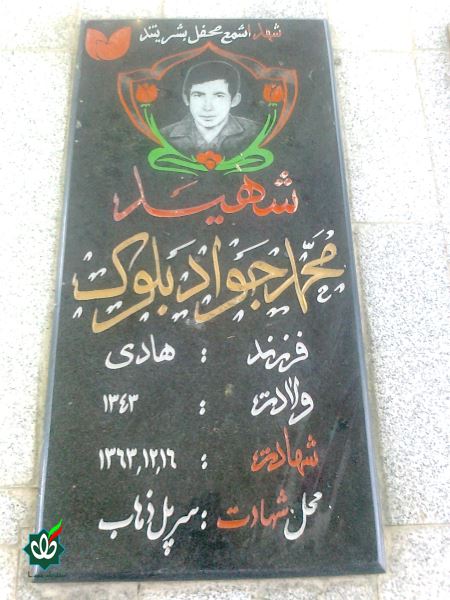 شهدا شمع محفل بشریتند
شهید
محمد جواد بلوک
فرزند : هادی
ولادت : ۱۳۴۳
شهادت : ۱۳۶۳,۱۲,۱۶
محل شهادت : سرپل ذهاب